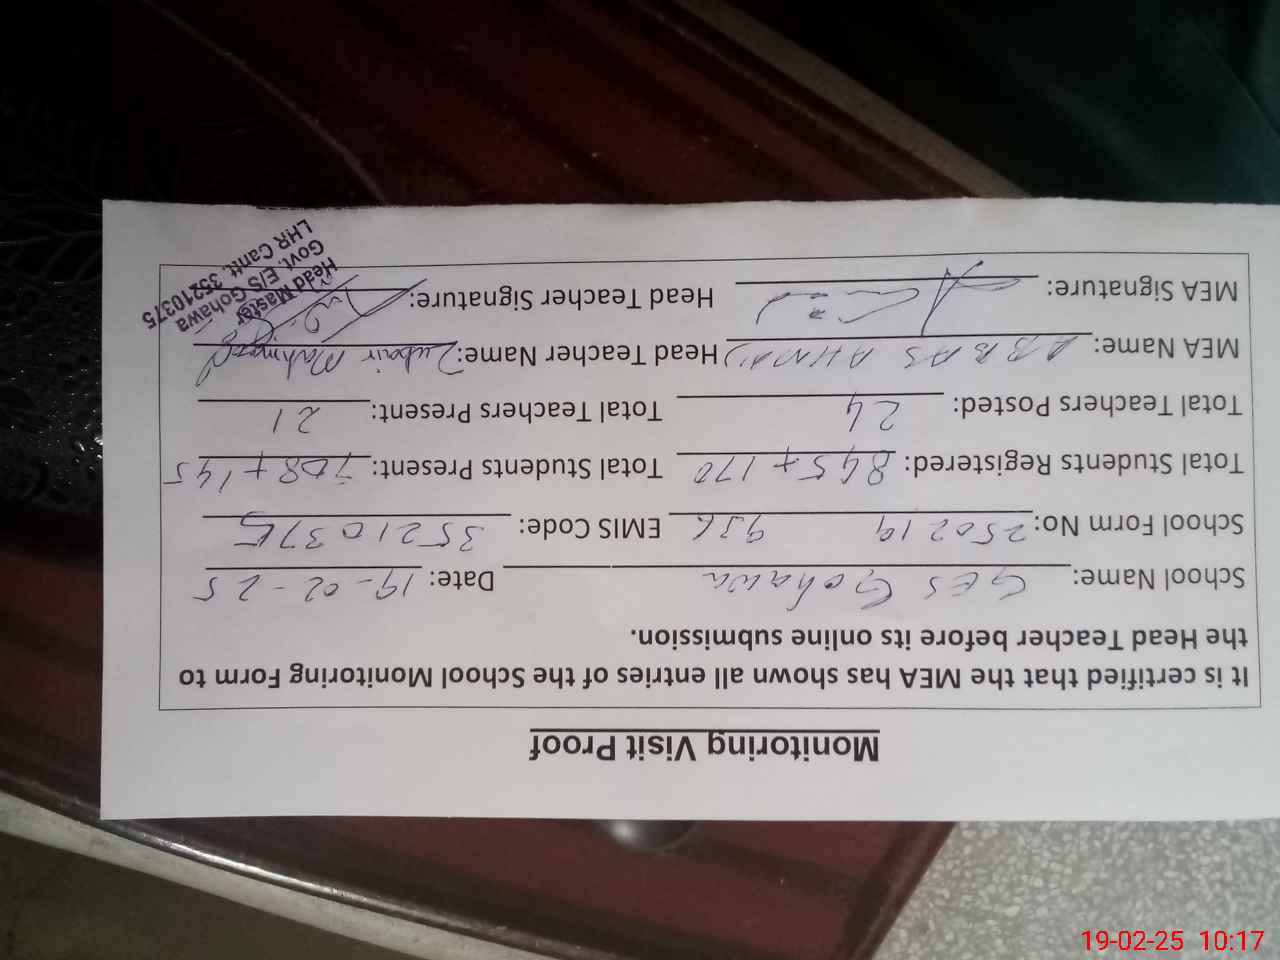 Monitoring Visit Proof
It is certified that the MEA has shown all entries of the School Monitoring Form to
the Head Teacher before its online submission.
School Name: GES Gohawa Date: 19-02-25
School Form No: 250219 936 EMIS Code: 35210375
Total Students Registered: 845+170 Total Students Present: 708+145
Total Teachers Posted: 24 Total Teachers Present: 21
MEA Name: ABBAS AHMAD Head Teacher Name: Zubair Mahmood
MEA Signature: Head Teacher Signature:
Head Master
Govt. E/S Gohawa
LHR Cantt. 35210375
19-02-25 10:17